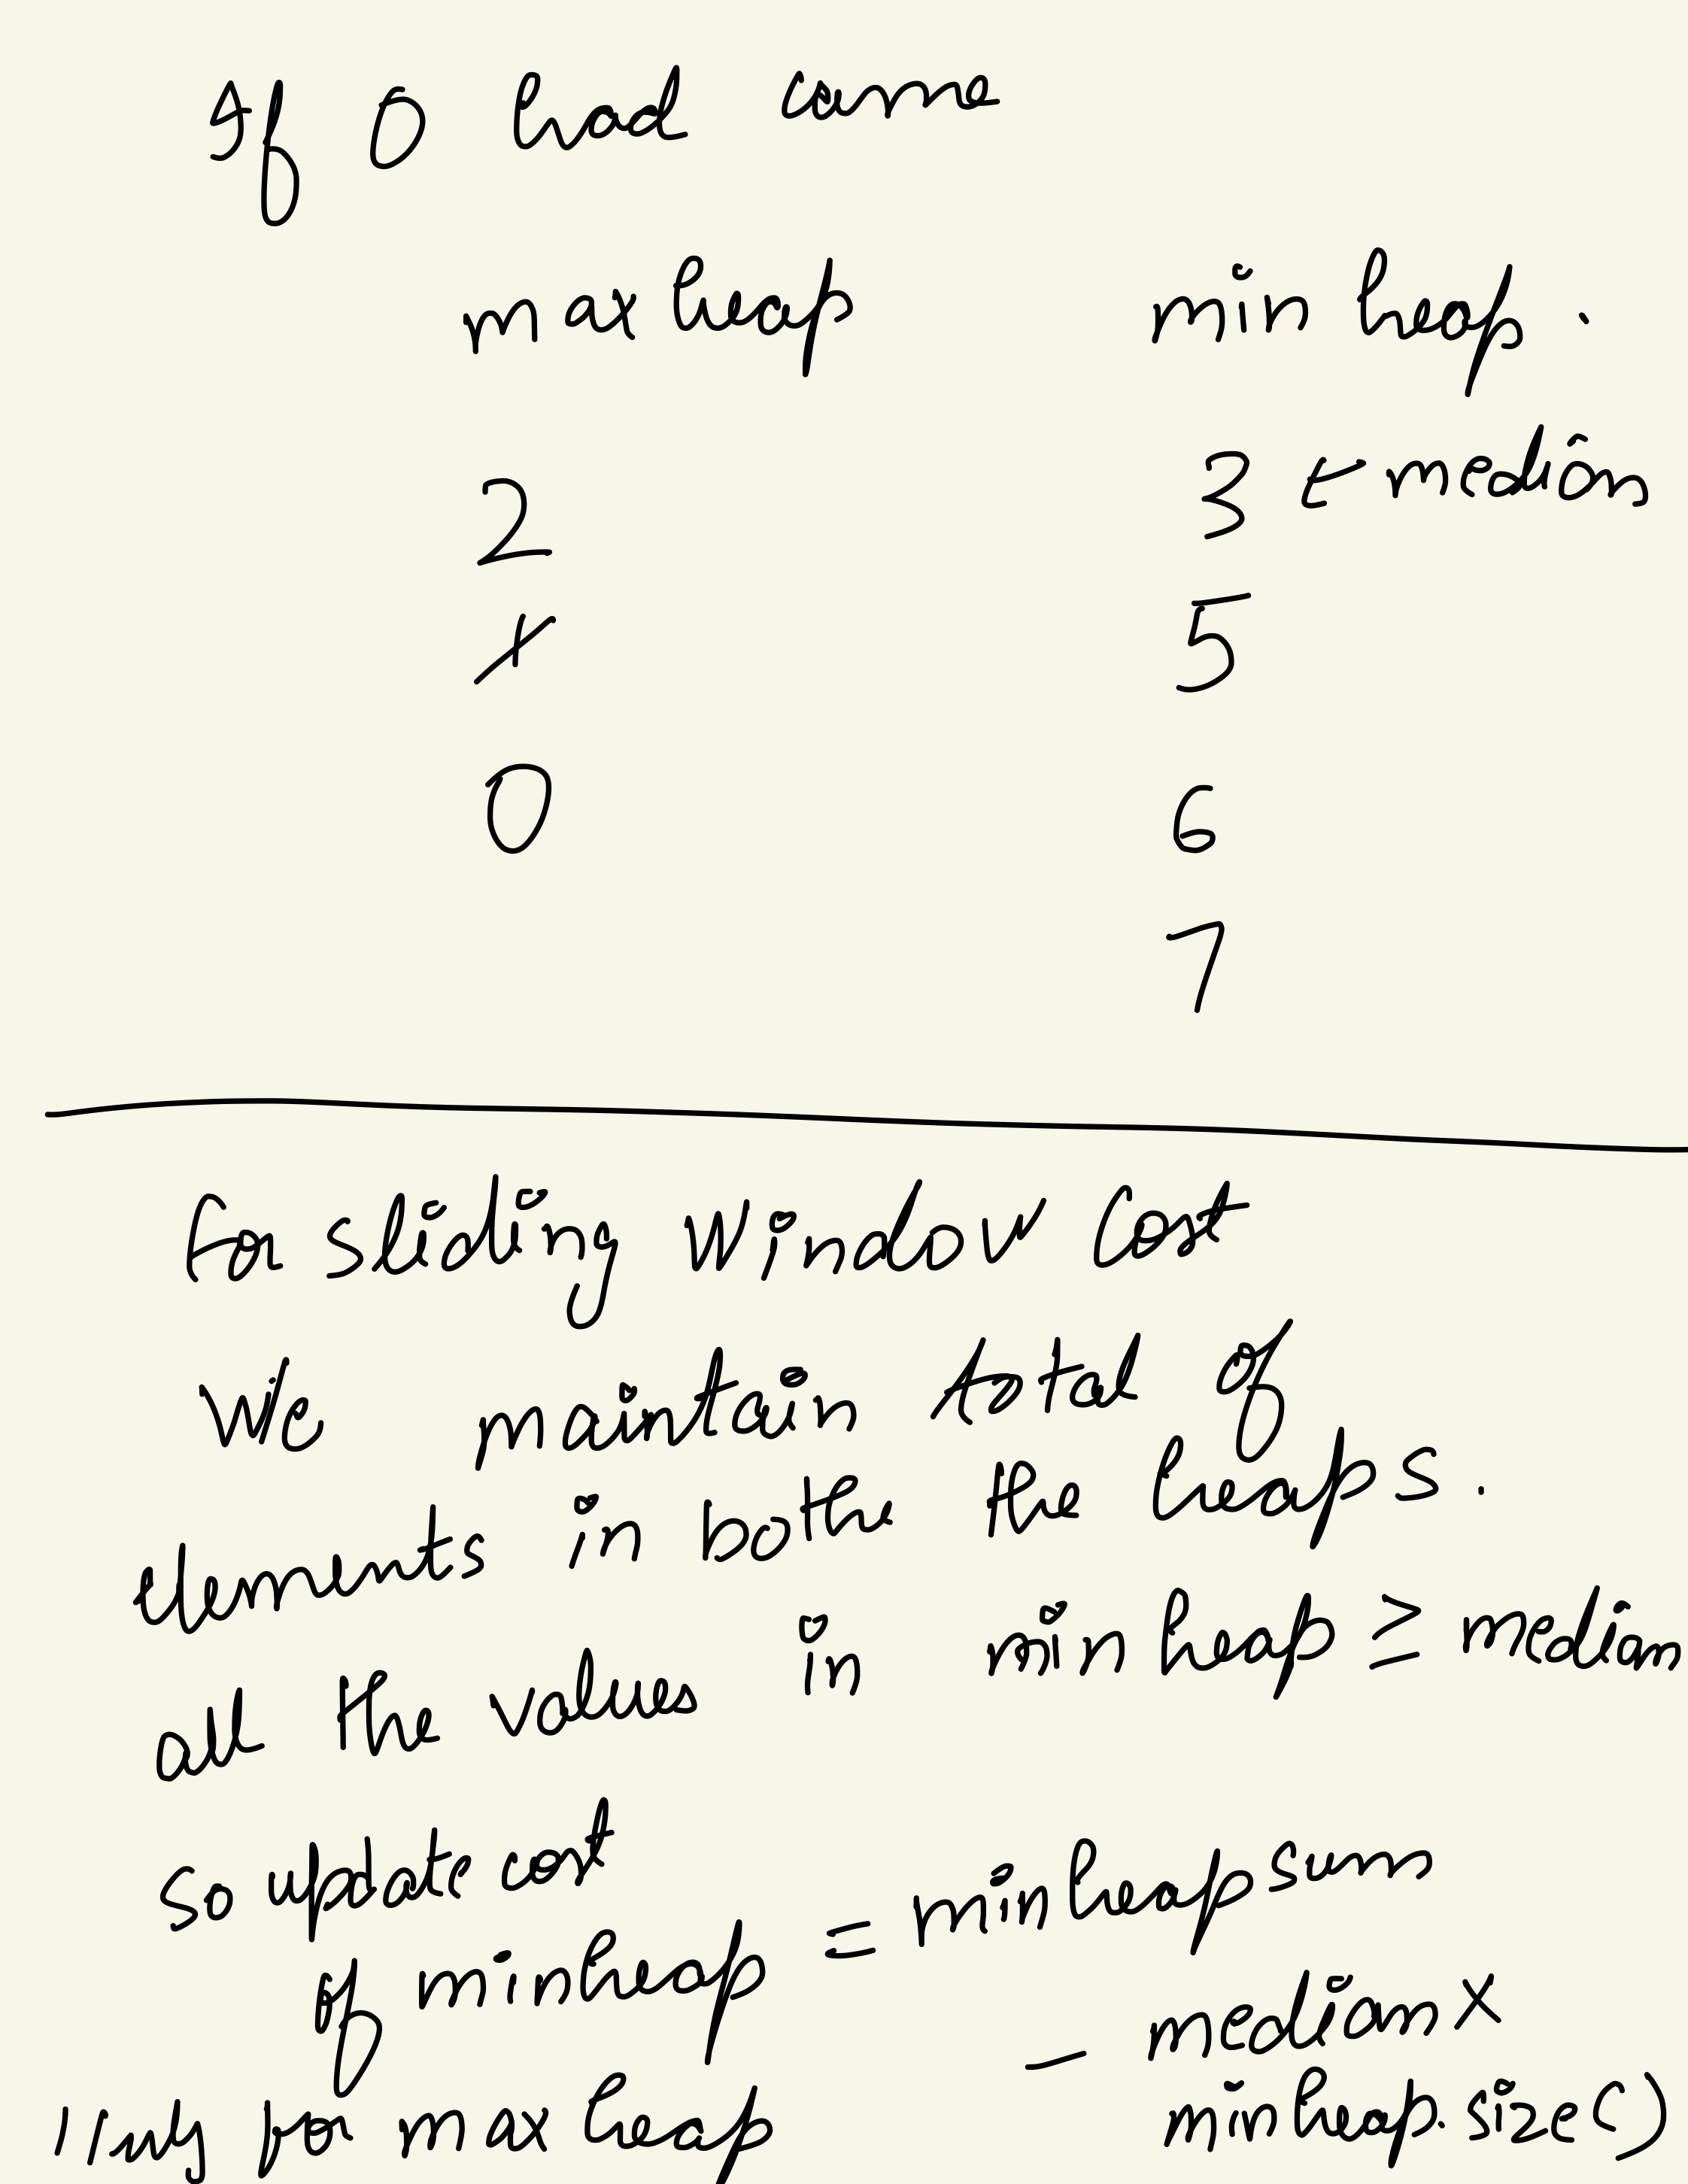 If 0 had come
max heap min heap.
2 3 ← median
1 5
0 6
7
For sliding window cost
We maintain total of
elements in both the heaps.
all the values in min heap ≥ median
so update cost
of minheap = minheap sum
- median x
minheap.size()
111ly for max heap